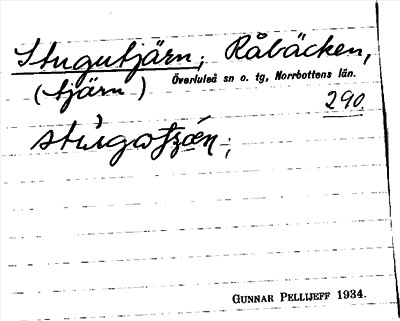 Stugutjärn; Råbäcken,
(tjärn) Överluleå sn o. tg, Norrbottens län.
290.
GUNNAR PELLIJEFF 1934.